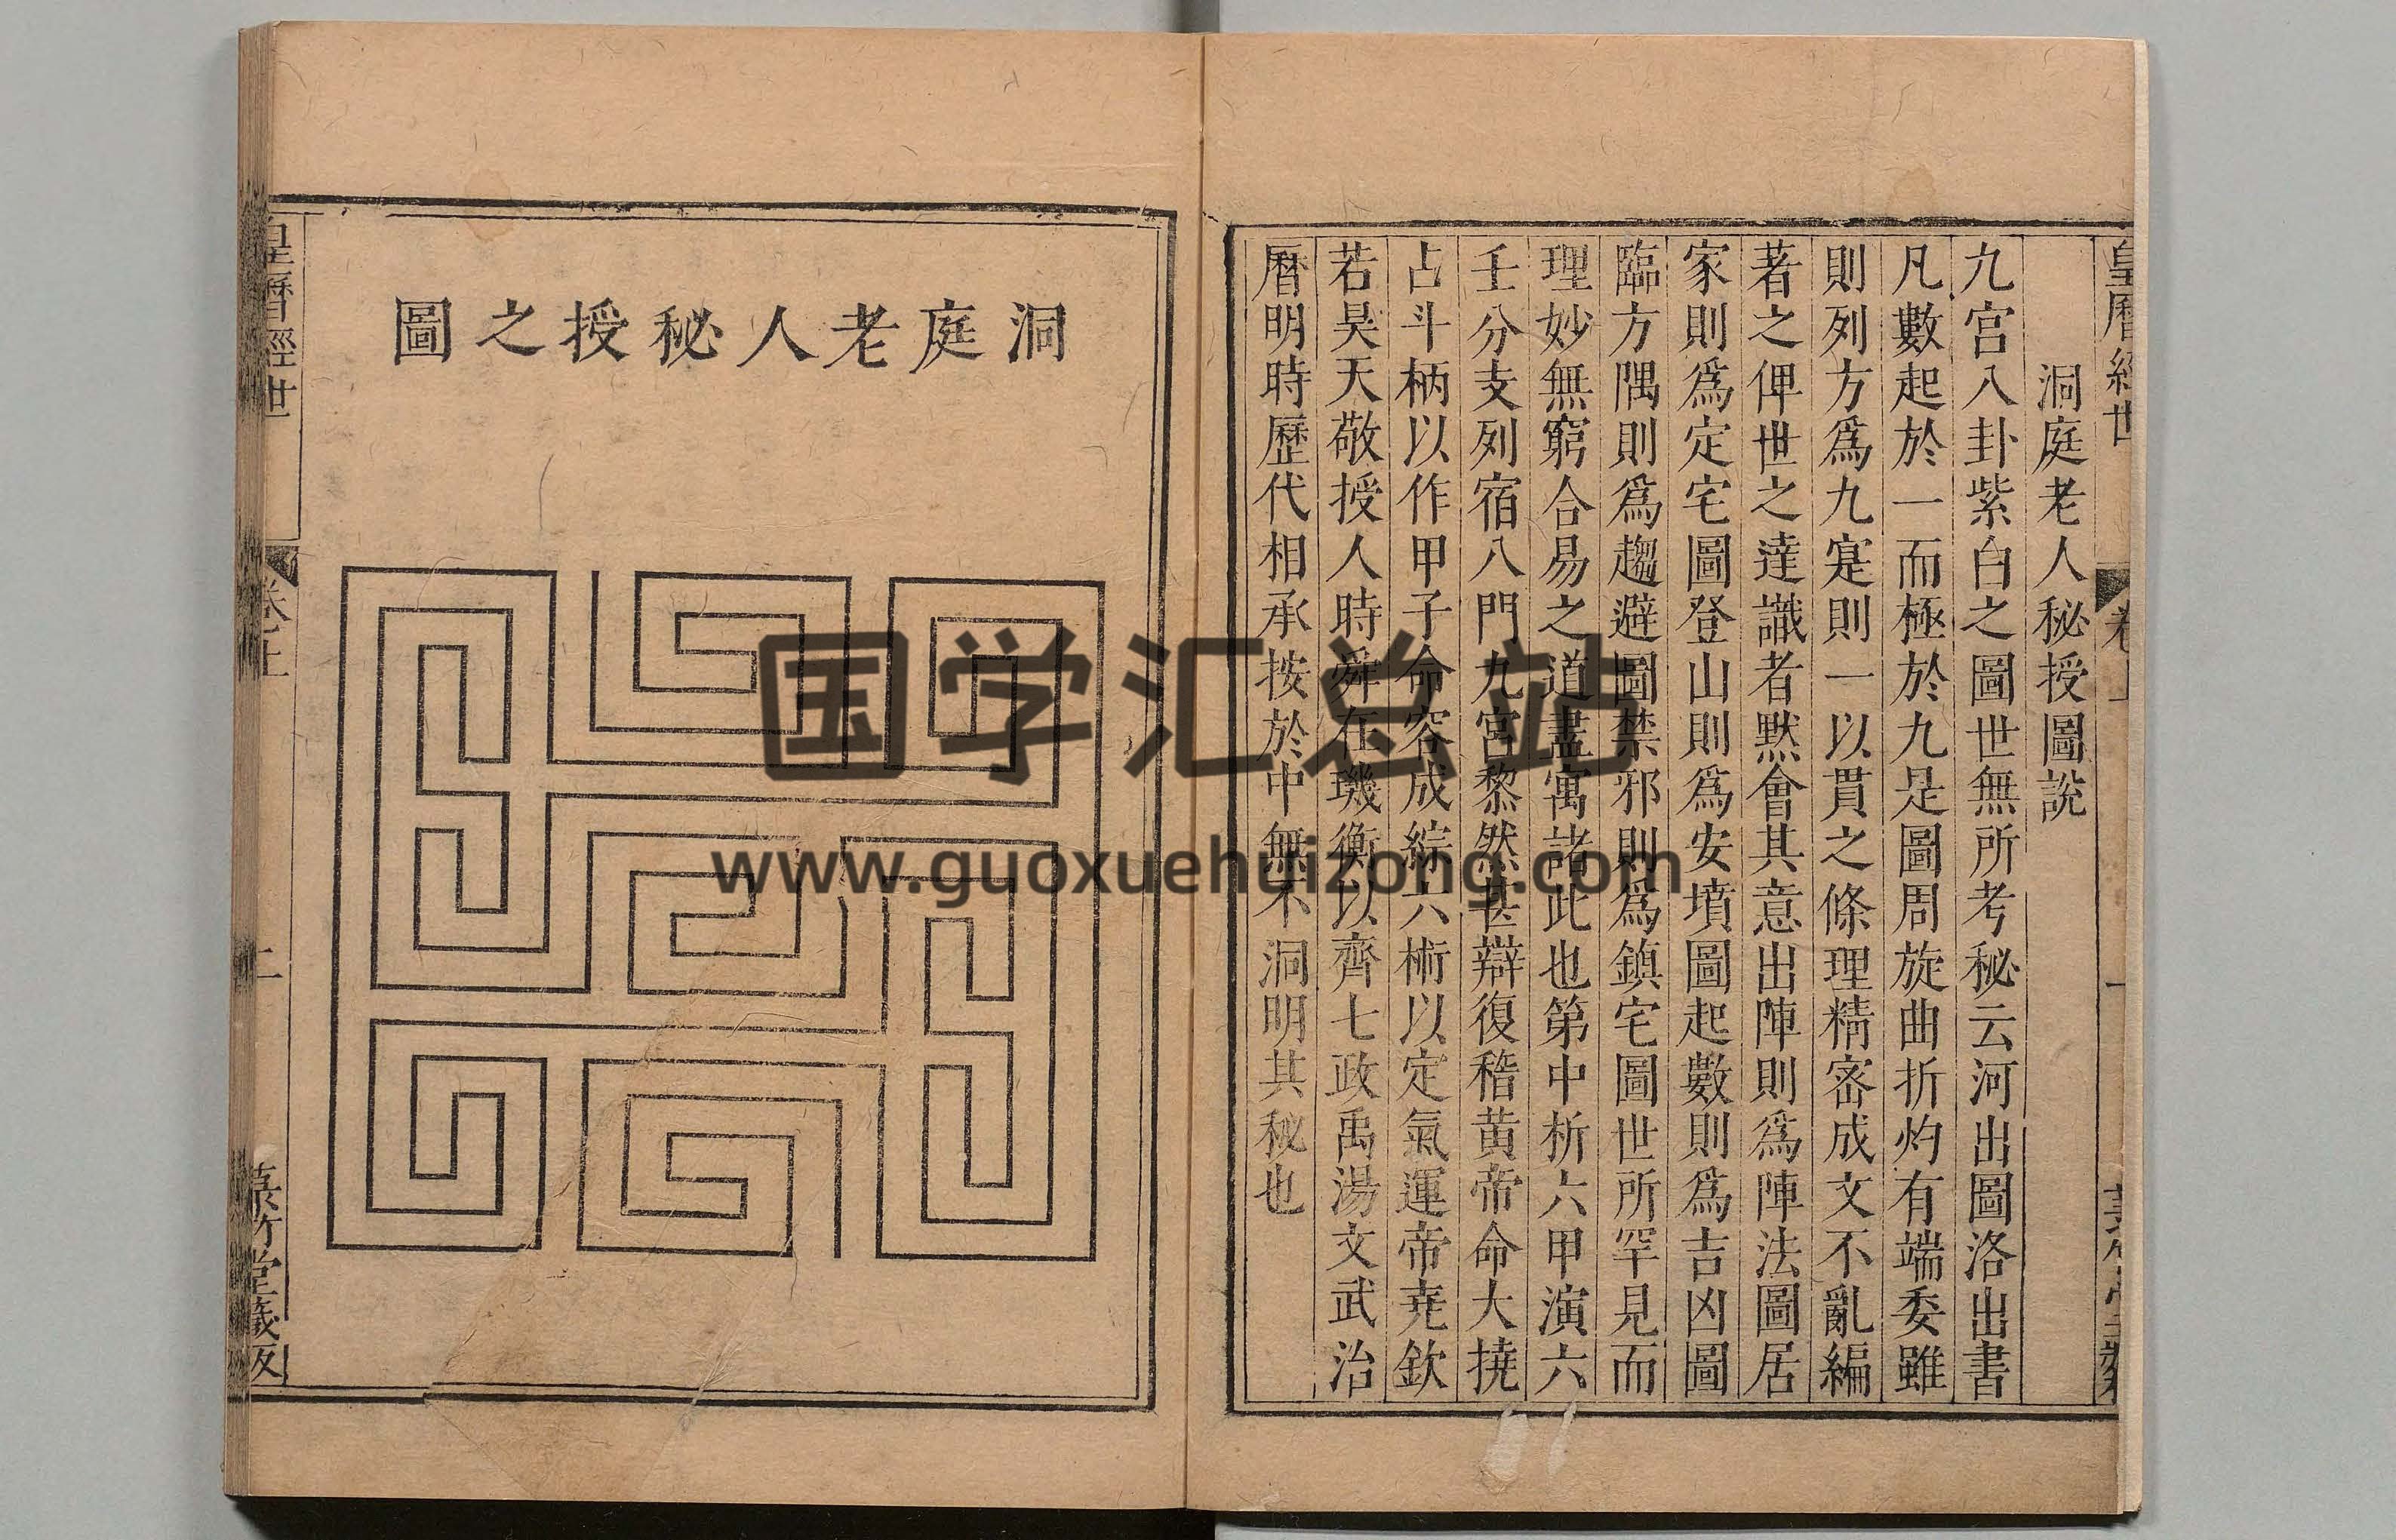 皇曆經世
卷上
一
洞庭老人秘授圖說
九宮八卦紫白之圖世無所考秘云河出圖洛出書
凡數起於一而極於九是圖周旋曲折灼有端委雖
則列方爲九寔則一以貫之條理精密成文不亂編
著之俾世之達識者黙會其意出陣則爲陣法圖居
家則爲定宅圖登山則爲安墳圖起數則爲吉凶圖
臨方隅則爲趨避圖禁邪則爲鎮宅圖世所罕見而
理妙無窮合易之道盡寓諸此也第中析六甲演六
壬分支列宿八門九宮黎然甚辯復稽黄帝命大撓
占斗柄以作甲子命容成綜六術以定氣運帝堯欽
若昊天敬授人時舜在璣衡以齊七政禹湯文武治
曆明時歷代相承按於中無不洞明其秘也
洞庭老人秘授之圖
皇曆經世
卷上
二
菉竹堂藏板
国学汇总站
www.guoxuehuizong.com